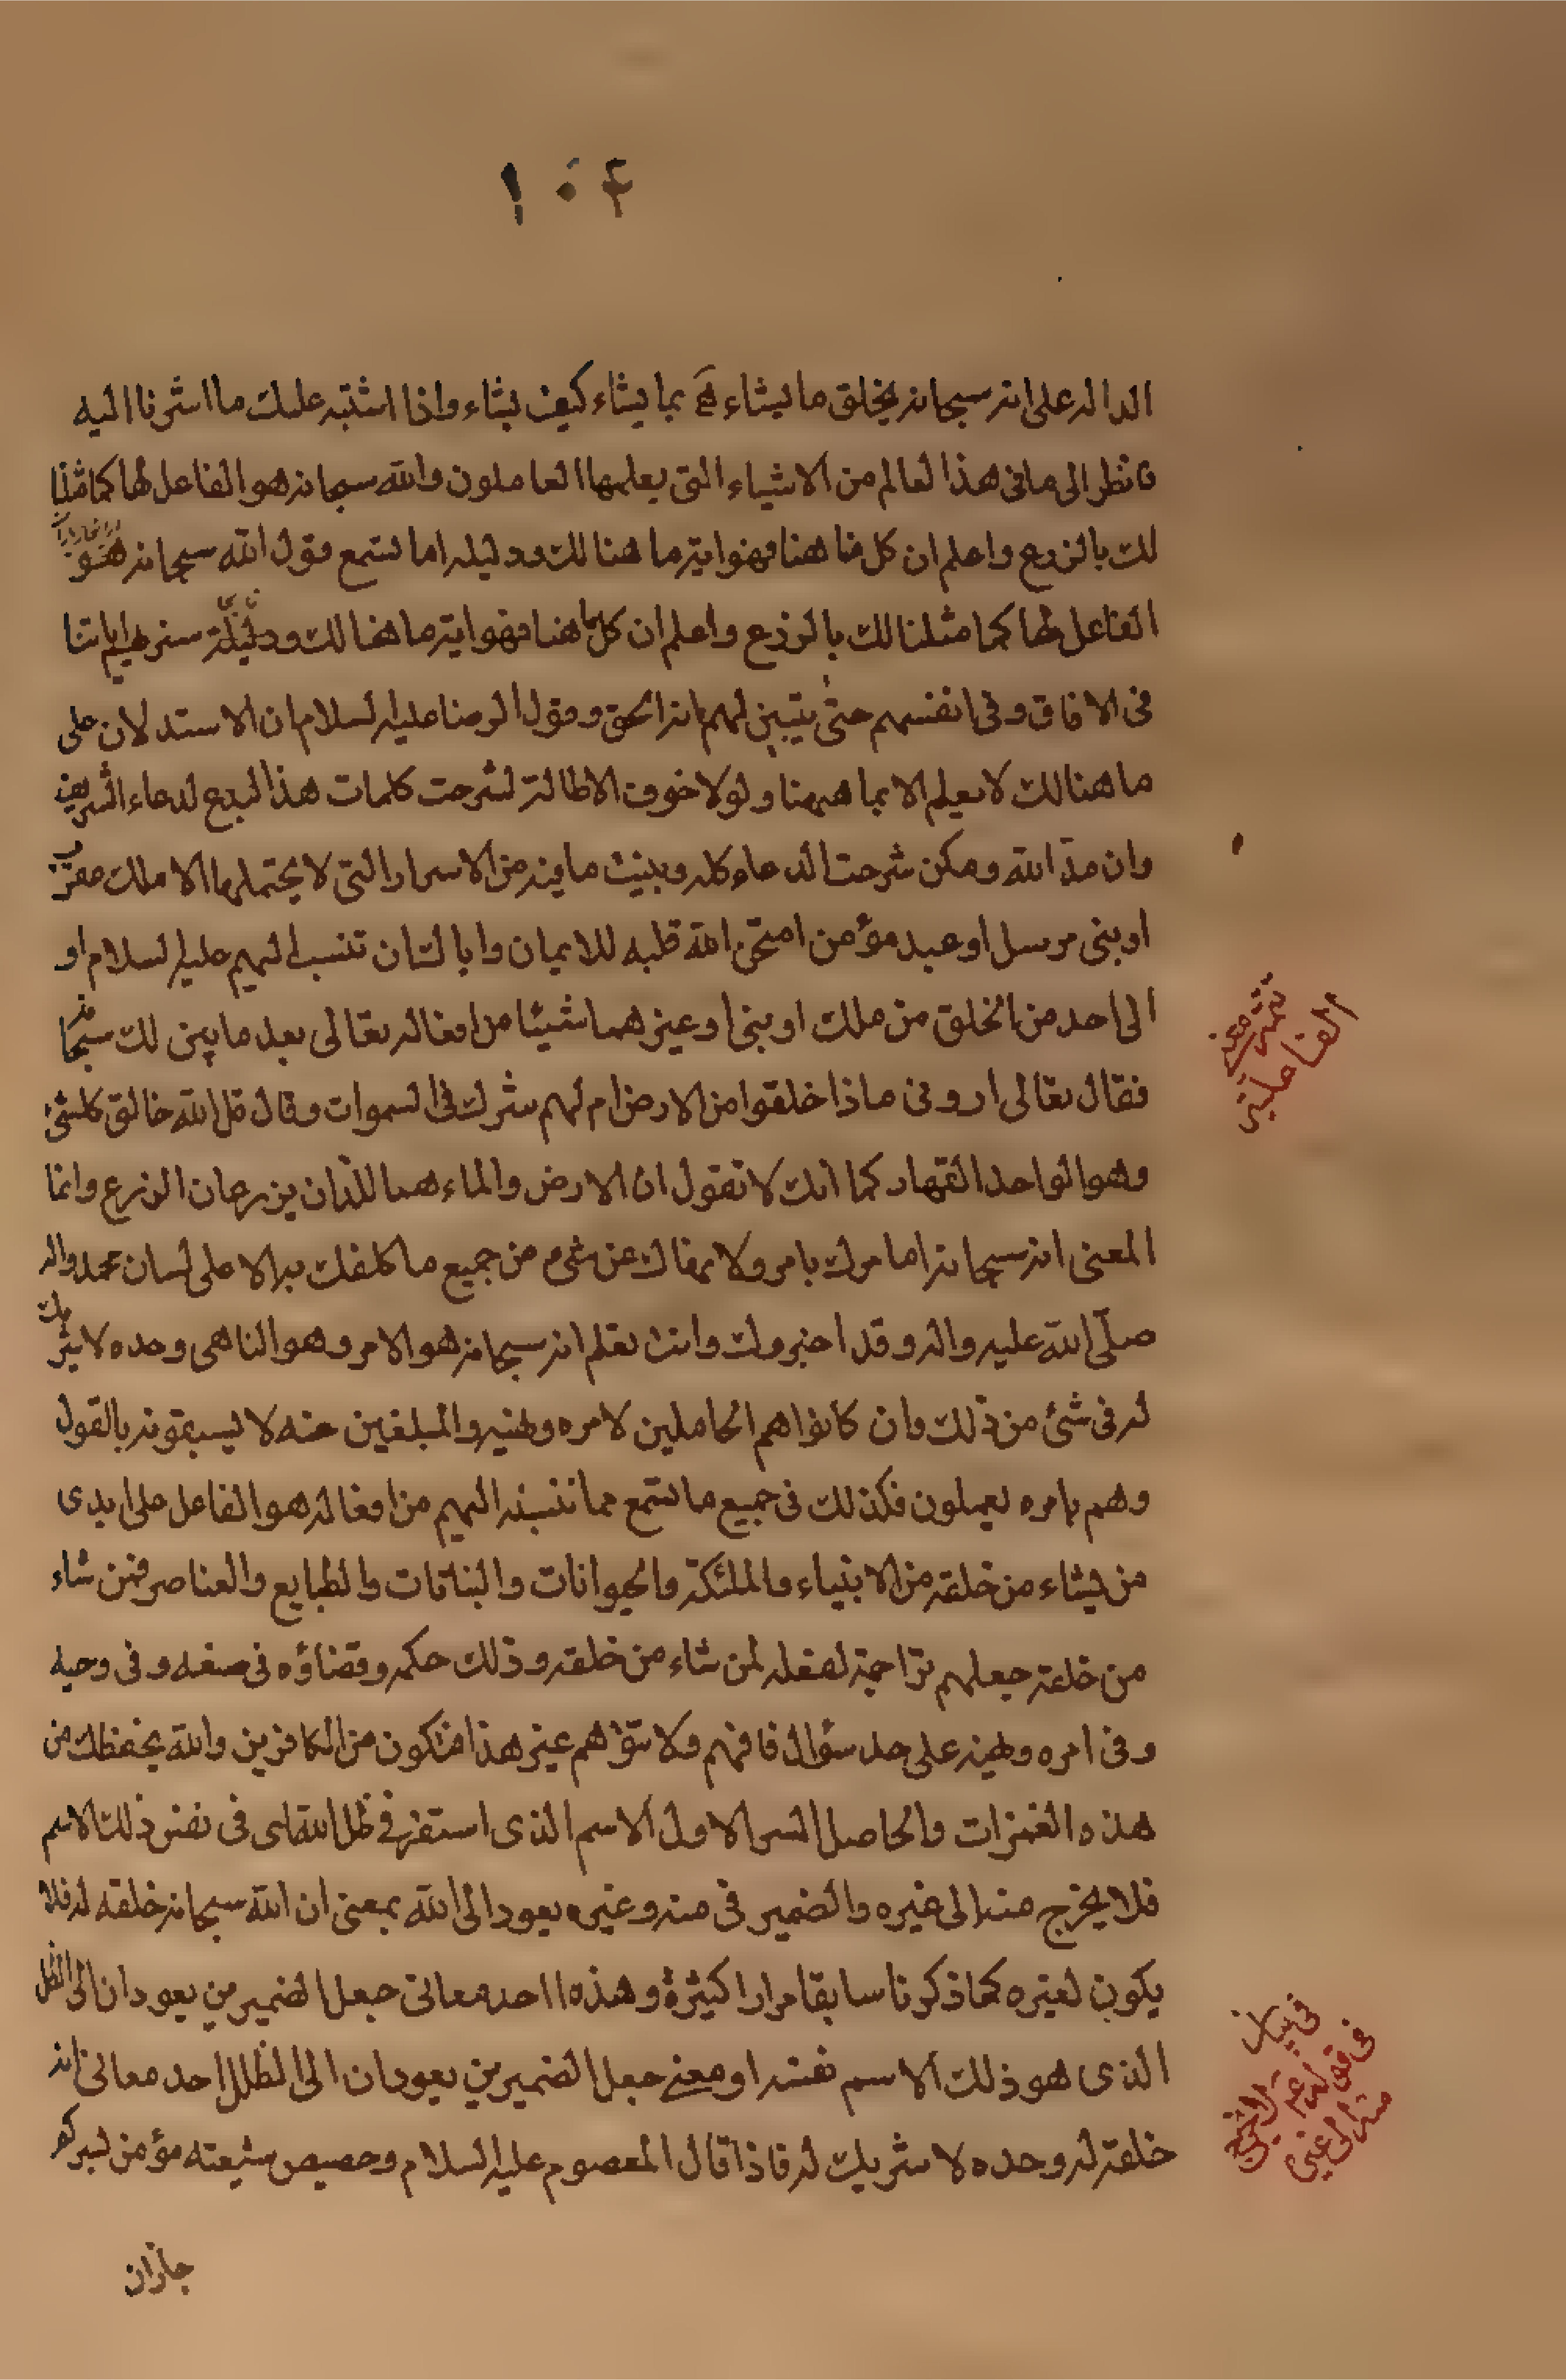 ۱۰۴
الدالة على انه سبحانه يخلق ما يشاء بما يشاء كيف يشاء واذا اشتبه عليك ما اشرنا اليه
فانظر الى ما فى هذا العالم من الاشياء التى يعملها العاملون والله سبحانه هو الفاعل لها كما مثلنا
لك بالزرع واعلم ان كل ما هنا فهو اية ما هنالك ودليله اما تسمع قول الله سبحانه هو
الفاعل لها كما مثلنا لك بالزرع واعلم ان كل ما هنا فهو اية ما هنالك ودليله سنريهم اياتنا
فى الافاق وفى انفسهم حتى يتبين لهم انه الحق وقول الرضا عليه السلام ان الاستدلال على
ما هنالك لا يعلم الا بما هيهنا ولولا خوف الاطالة لشرحت كلمات هذا البدع لدعاء الشريف
وان مد الله ومكن شرحت الدعاء كله وبينت ما فيه من الاسرار التى لا يحتملها الا ملك مقرب
او نبى مرسل او عبد مؤمن امتحن الله قلبه للايمان واياك ان تنسب اليهم عليهم السلام او
الى احد من الخلق من ملك او نبى او غيرهما شيئا من افعاله تعالى بعد ما بين لك سبحانه
فقال تعالى ارونى ماذا خلقوا من الارض ام لهم شرك فى السموات وقال قل الله خالق كلشئ
وهو الواحد القهار كما انك لا تقول ان الارض والماء هما اللذان يزرعان الزرع وانما
المعنى انه سبحانه اما مرك بامر ولا نهاك عن شئ من جميع ما كلفك به الا على لسان محمد واله
صلى الله عليه واله وقد اخبروك وانت تعلم انه سبحانه هو الامر وهو الناهى وحده لا شريك
له فى شئ من ذلك وان كانوا هم الحاملين لامره ونهيه والمبلغين عنه لا يسبقونه بالقول
وهم بامره يعملون فكذلك فى جميع ما تسمع مما ننسبه اليهم من افعاله هو الفاعل على ايدى
من يشاء من خلقه من الانبياء والملئكة والحيوانات والنباتات والطبايع والعناصر فمن شاء
من خلقه جعلهم تراجمة لفعله لمن شاء من خلقه وذلك حكمه وقضاؤه فى صنعه وفى وحيه
وفى امره ونهيه على حد سؤال فافهم ولا تتوهم غير هذا فتكون من الكافرين والله يحفظك من
هذه الغمزات والحاصل السر الاول الاسم الذى استقر فى ظل الله اى فى نفس ذلك الاسم
فلا يخرج منه الى غيره والضمير فى منه وغيره يعود الى الله بمعنى ان الله سبحانه خلقه له فلا
يكون لغيره كما ذكرنا سابقا مرارا كثيرة وهذه احد معانى جعل الضميرين يعودان الى الظل
الذى هو ذلك الاسم نفسه او معنى جعل الضميرين يعودان الى الظل احد معانى انه
خلقه له وحده لا شريك له فاذا قال المعصوم عليه السلام وحصيص شيعته مؤمن
تتمة معنى
الفاعلية
فى بيان
فى قوله ع لا يخرج
منه الى غيره